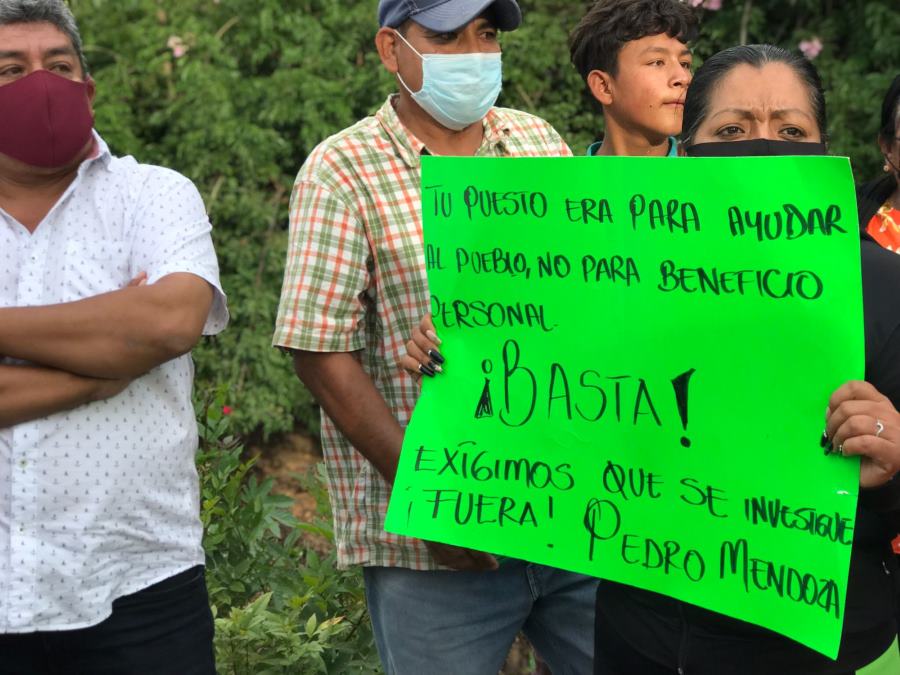 TU PUESTO ERA PARA AYUDAR
AL PUEBLO, NO PARA BENEFICIO
PERSONAL.
¡BASTA!
EXIGIMOS QUE SE INVESTIGUE
¡FUERA! PEDRO MENDOZA